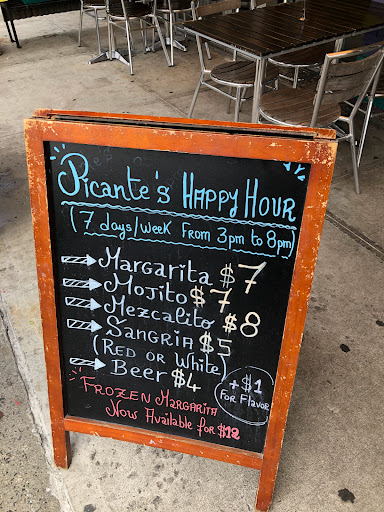 Picante's HAPPY HOUR
(7 days/week From 3pm to 8pm)
Margarita $7
Mojito $7
Mezcalito $8
SANGRIA $5
(RED OR White)
Beer $4
+$1
FOR FlavoR
FROZEN MARGARITA
Now Available for $12